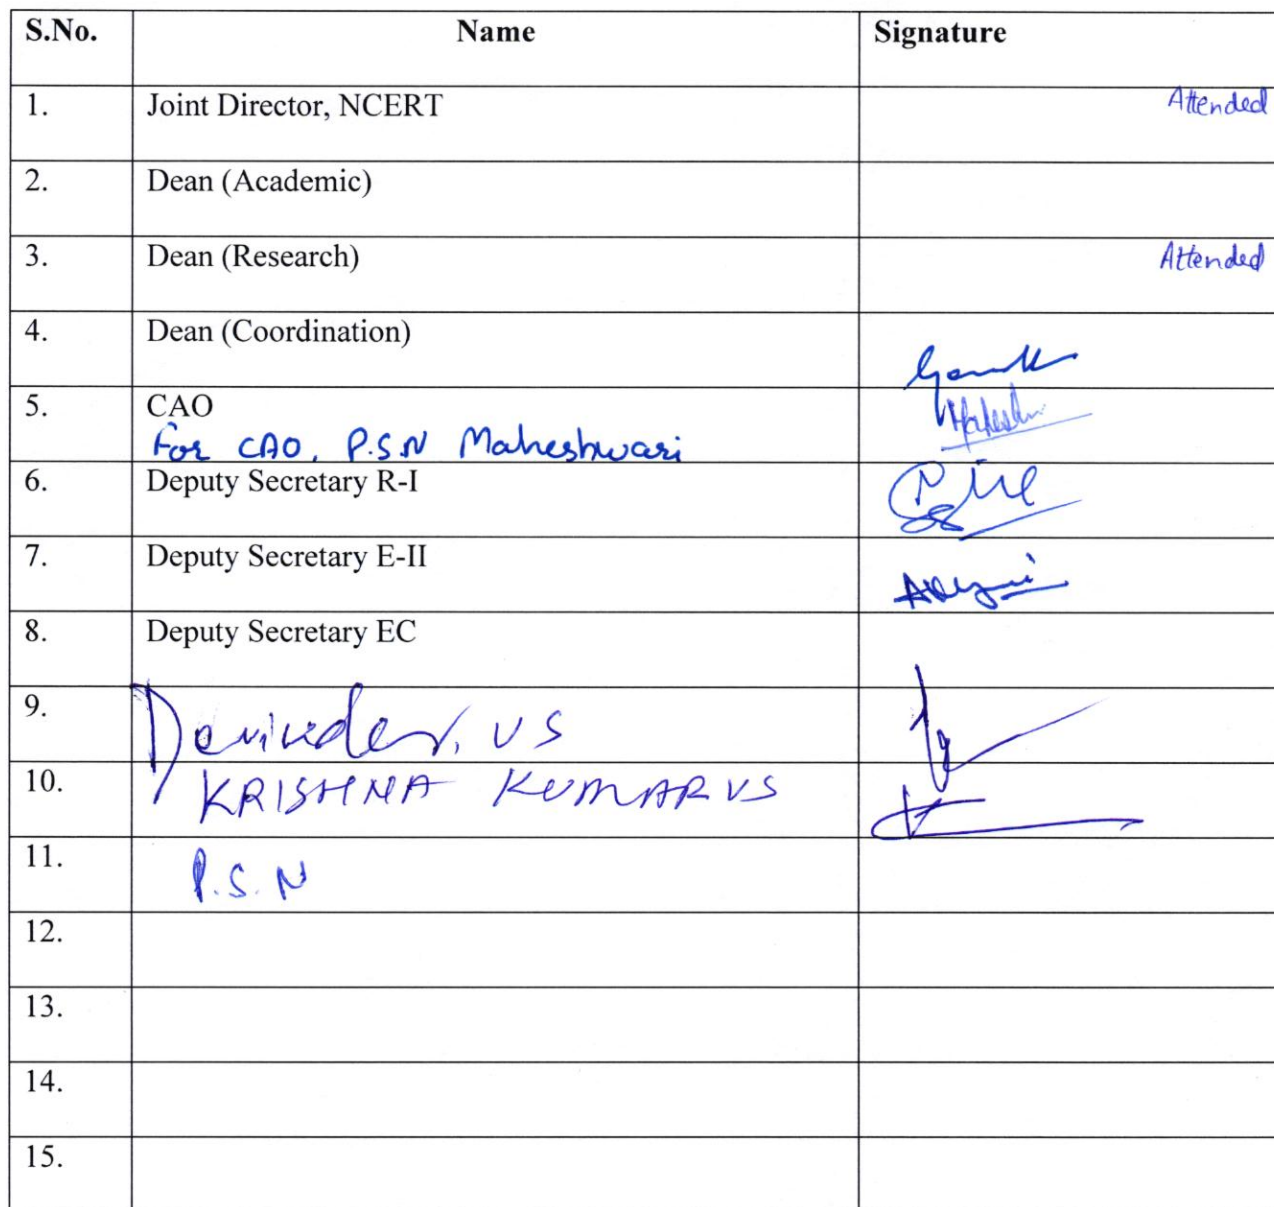 S.No. Name Signature
1. Joint Director, NCERT Attended
2. Dean (Academic)
3. Dean (Research) Attended
4. Dean (Coordination)
5. CAO
For CAO, P.S.N Maheshwari
6. Deputy Secretary R-I
7. Deputy Secretary E-II
8. Deputy Secretary EC
9. Devinder, US
10. KRISHNA KUMAR US
11. P.S.N
12.
13.
14.
15.